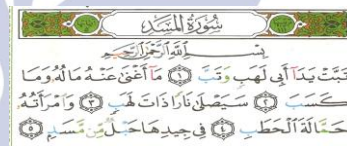 سُورَةُ المَسَدِ
بِسْمِ اللَّهِ الرَّحْمَٰنِ الرَّحِيمِ
تَبَّتْ يَدَآ أَبِى لَهَبٍ وَتَبَّ ۝١ مَآ أَغْنَىٰ عَنْهُ مَالُهُۥ وَمَا
كَسَبَ ۝٢ سَيَصْلَىٰ نَارًا ذَاتَ لَهَبٍ ۝٣ وَٱمْرَأَتُهُۥ
حَمَّالَةَ ٱلْحَطَبِ ۝٤ فِى جِيدِهَا حَبْلٌ مِّن مَّسَدٍۭ ۝٥